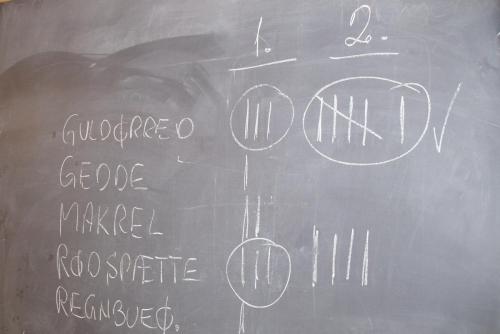 1. 2.
GULDØRRED
GEDDE
MAKREL
RØDSPÆTTE
REGNBUEØ.